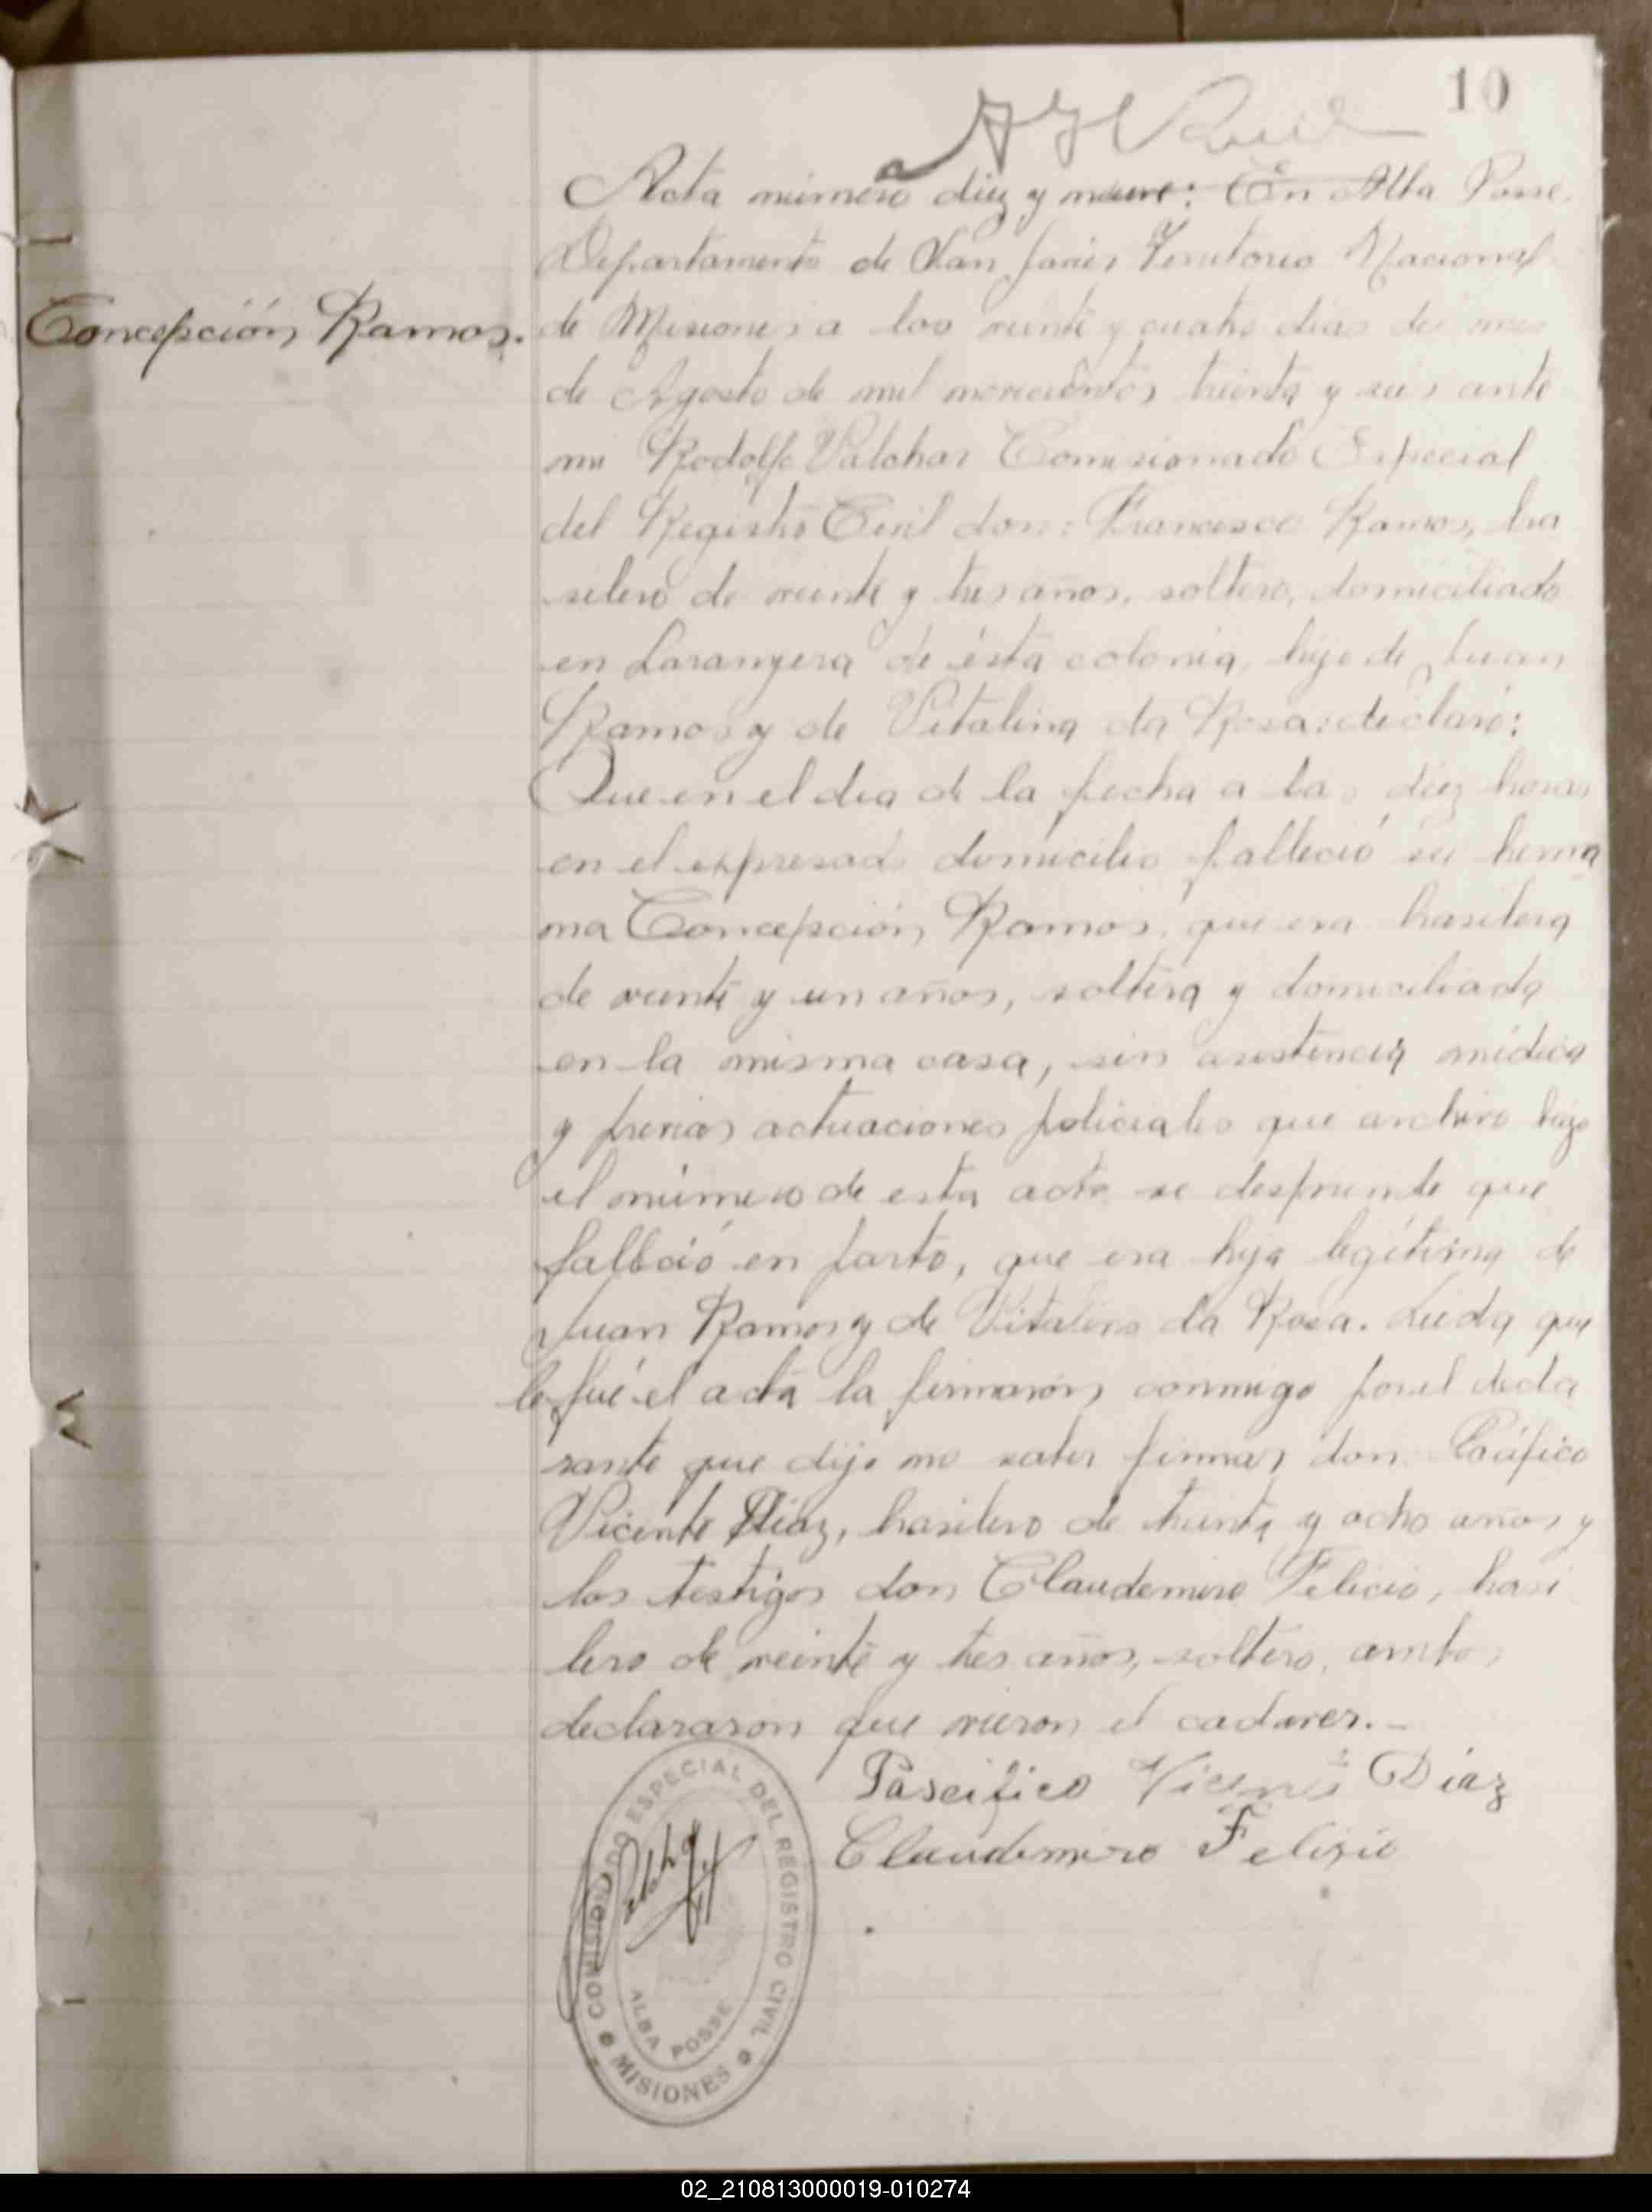 10
Acta número diez y nueve: En Alba Posse,
Departamento de San Javier Territorio Nacional
Concepción Ramos.
de Misiones a los veinte y cuatro dias del mes
de Agosto de mil novecientos treinta y seis ante
mi Rodolfo Valchar Comisionado Especial
del Registro Civil don: Francisco Ramos, bra
silero de veinte y tres años, soltero, domiciliado
en Laranjera de ésta colonia, hijo de Juan
Ramos y de Vitalina da Rosa: declaró:
Que en el dia de la fecha a las diez horas
en el expresado domicilio falleció su herma
na Concepción Ramos, que era brasilera
de veinte y un años, soltera y domiciliada
en la misma casa, sin asistencia médica
y previas actuaciones policiales que archivo bajo
el número de esta acta se desprende que
falleció en parto, que era hija legítima de
Juan Ramos y de Vitalina da Rosa. Leida que
le fué el acta la firmaron conmigo por el decla
rante que dijo no saber firmar don Pacífico
Vicente Diaz, brasilero de treinta y ocho años y
los testigos don Claudemiro Felicio, brasi
lero de veinte y tres años, soltero, ambos
declararon que vieron el cadaver.-
Pascifico Vicente Diaz
Claudemiro Felisio
COMISIONADO ESPECIAL DEL REGISTRO CIVIL
ALBA POSSE
MISIONES
02_210813000019-010274